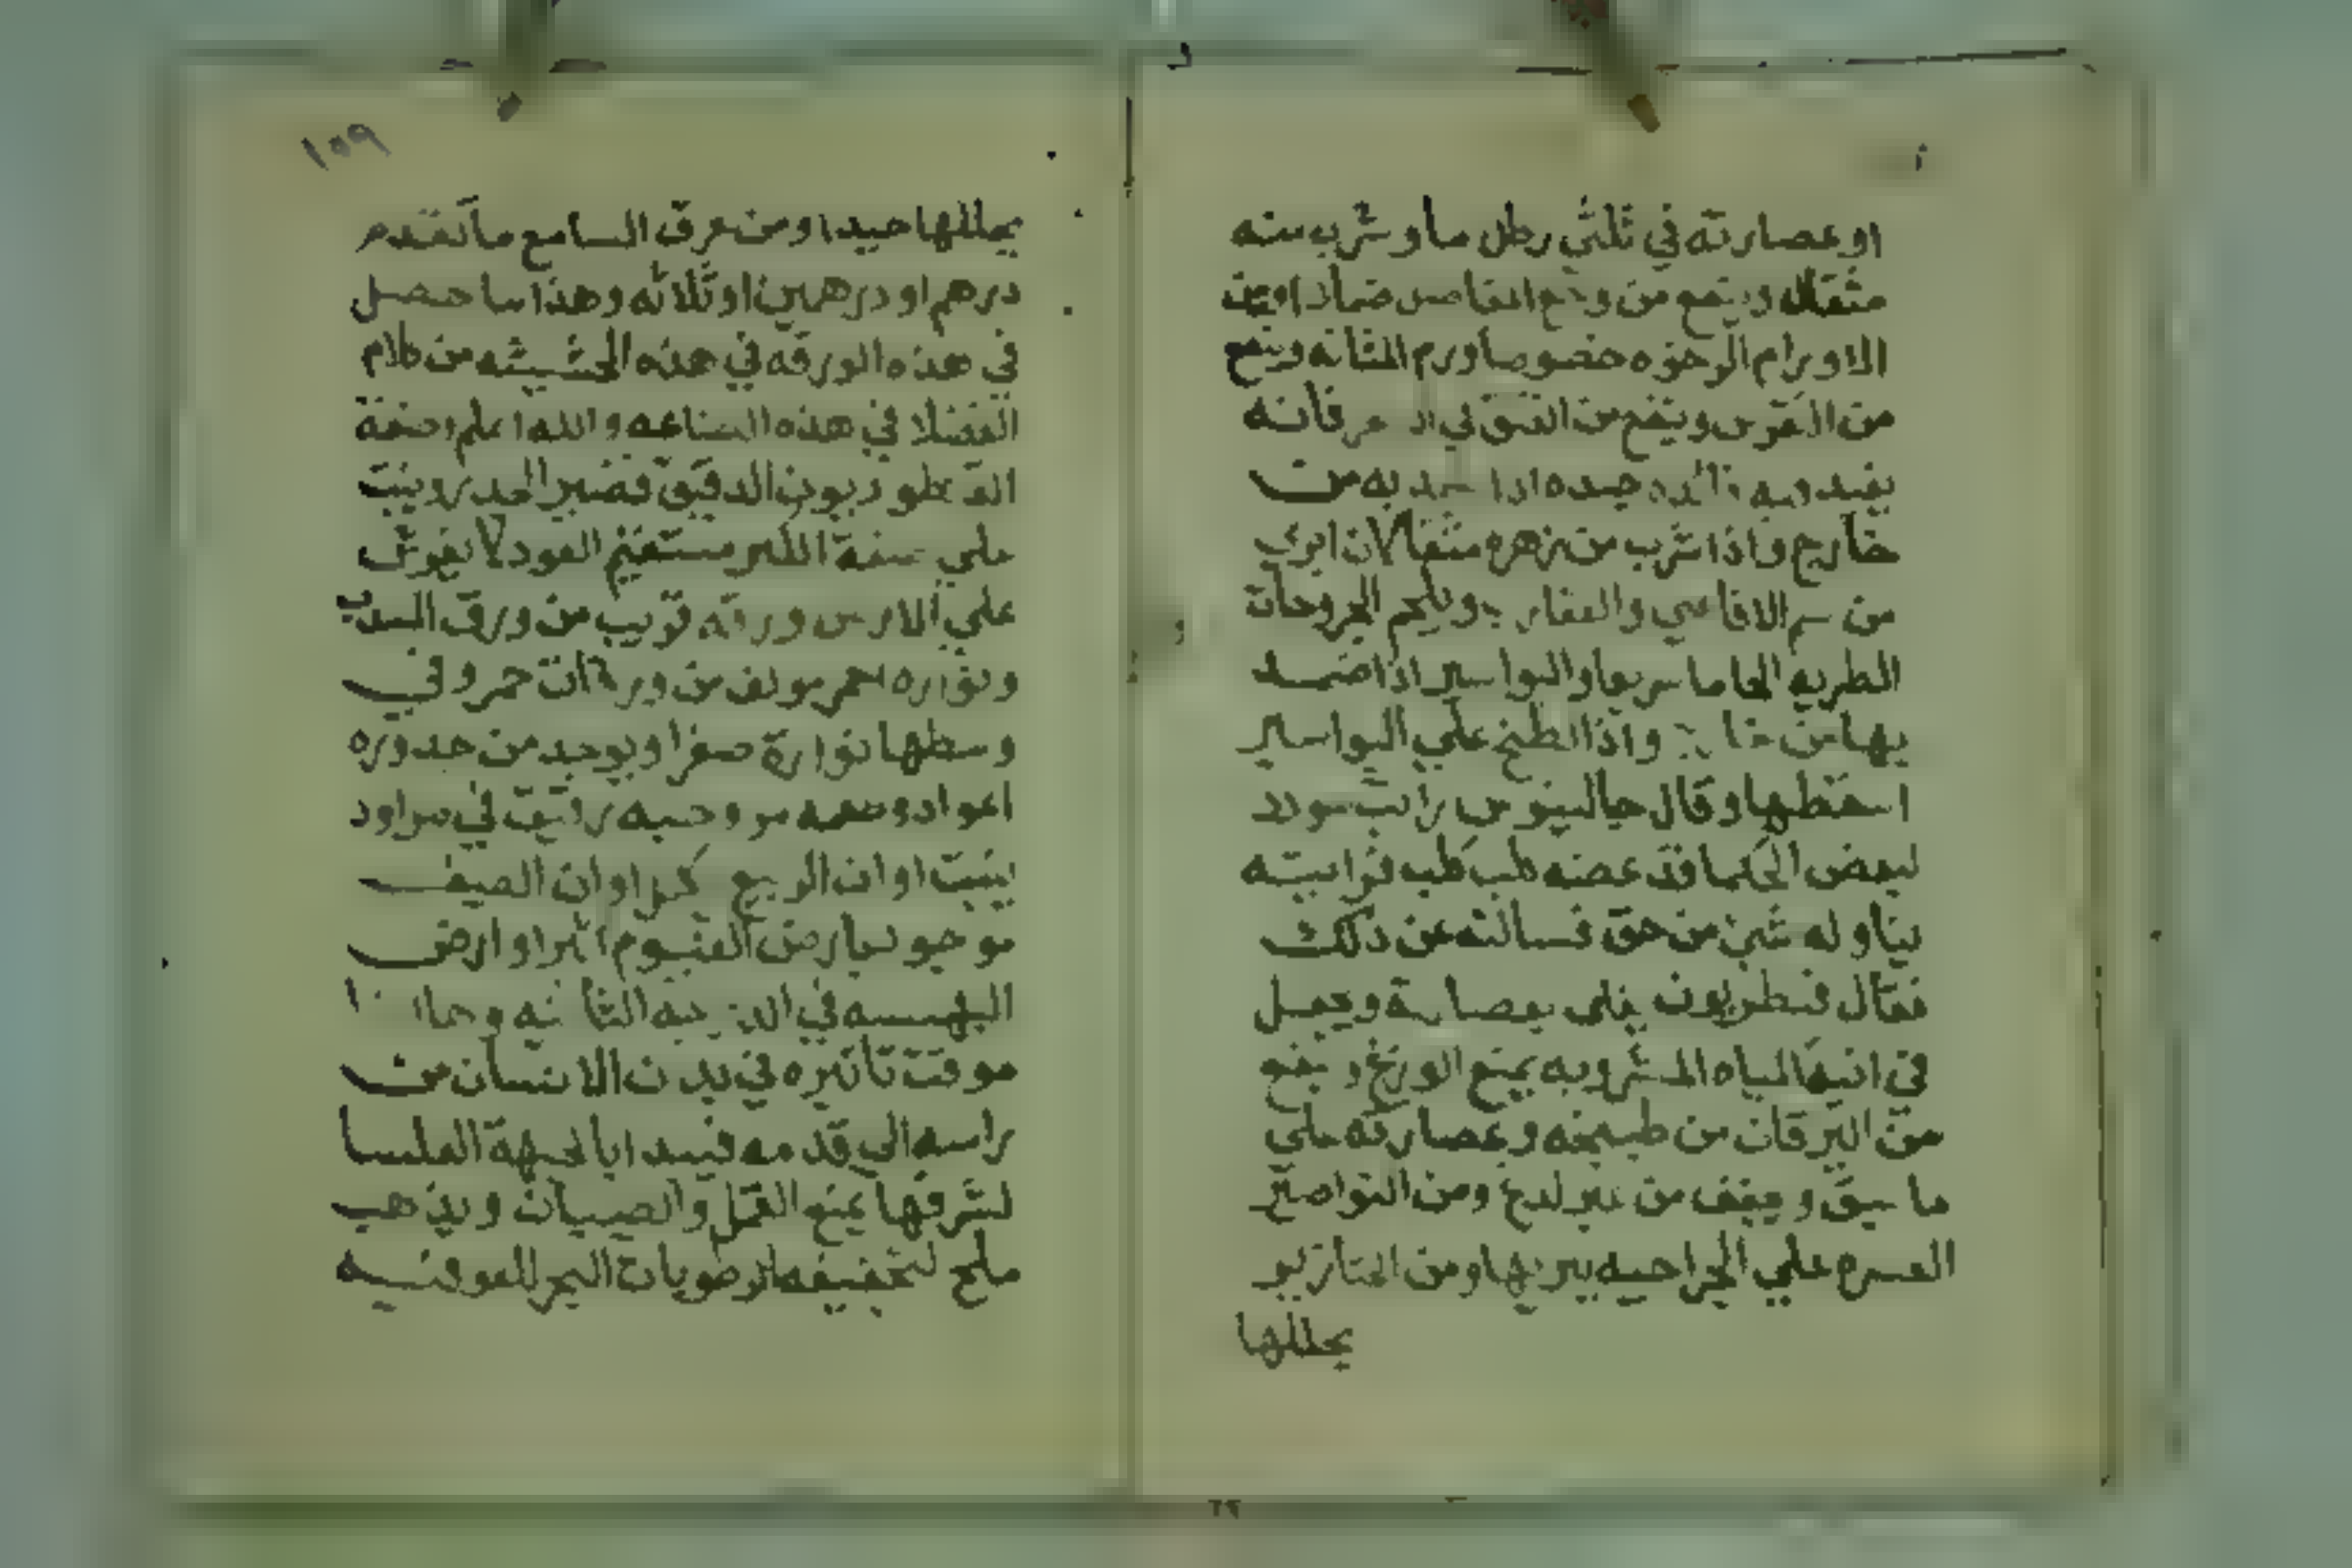 او عصارته في ثلثي رطل ما وشرب منه
مثقال وينفع من وجع المفاصل ضمادا ومن
الاورام الرخوه خصوصا ورم المثانه وينفع
من النقرس وينفع من الفتق في فانه
يفيد فيه فائده جيده اذا به من
خارج واذا شرب من زهره مثقالان ابري
من سم الافاعي والعقارب ويلحم الجروحات
الطريه الحاما سريعا والبواسير اذا ضمد
بها من خارج واذا لطخ علي البواسير
اسقطها وقال جالينوس رايت
لبعض الحكما قد عضه كلب كلب فرايته
يناوله شي من حق فسالته عن ذلك
فقال قنطريون يغلي ويجعل
في انية المياه المشروبه يمنع الوزغ وينفع
من اليرقان من طبيخه وعصارته علي
ما سبق ويجفف من غير لدغ ومن النواصير
العسره علي الجراحيه يبريها ومن الخنازير
يحللها
١٥٩
يحللها جيدا ومن عرق السامع ما تقدم
درهم او درهمين او ثلاثه وهذا ما حصل
في هذه الورقه في هذه الحشيشه من كلام
الفضلا في هذه الصناعه والله اعلم وصفة
القنطوريون الدقيق قصير الجدر وينبت
علي صفة الكبر مستقيم العود لا يفرش
علي الارض ورقه قريب من ورق السدب
ونواره احمر مولف من ورقات حمر وفي
وسطها نوارة صفرا ويوجد من جدوره
اعواد وطعمه مر وحبه رقيق في مراود
ينبت اوان الربيع اوان الصيف
موجود بارض الفيوم كثيرا وارض
البهنسه في الدرجه الثانيه
موقت تاثيره في بدن الانسان من
راسه الي قدمه فيبدا بالجبهة العليا
لشرفها يمنع القمل والصيبان ويذهب
ملح لتجفيفه لرطوبات البحر للعوقيه